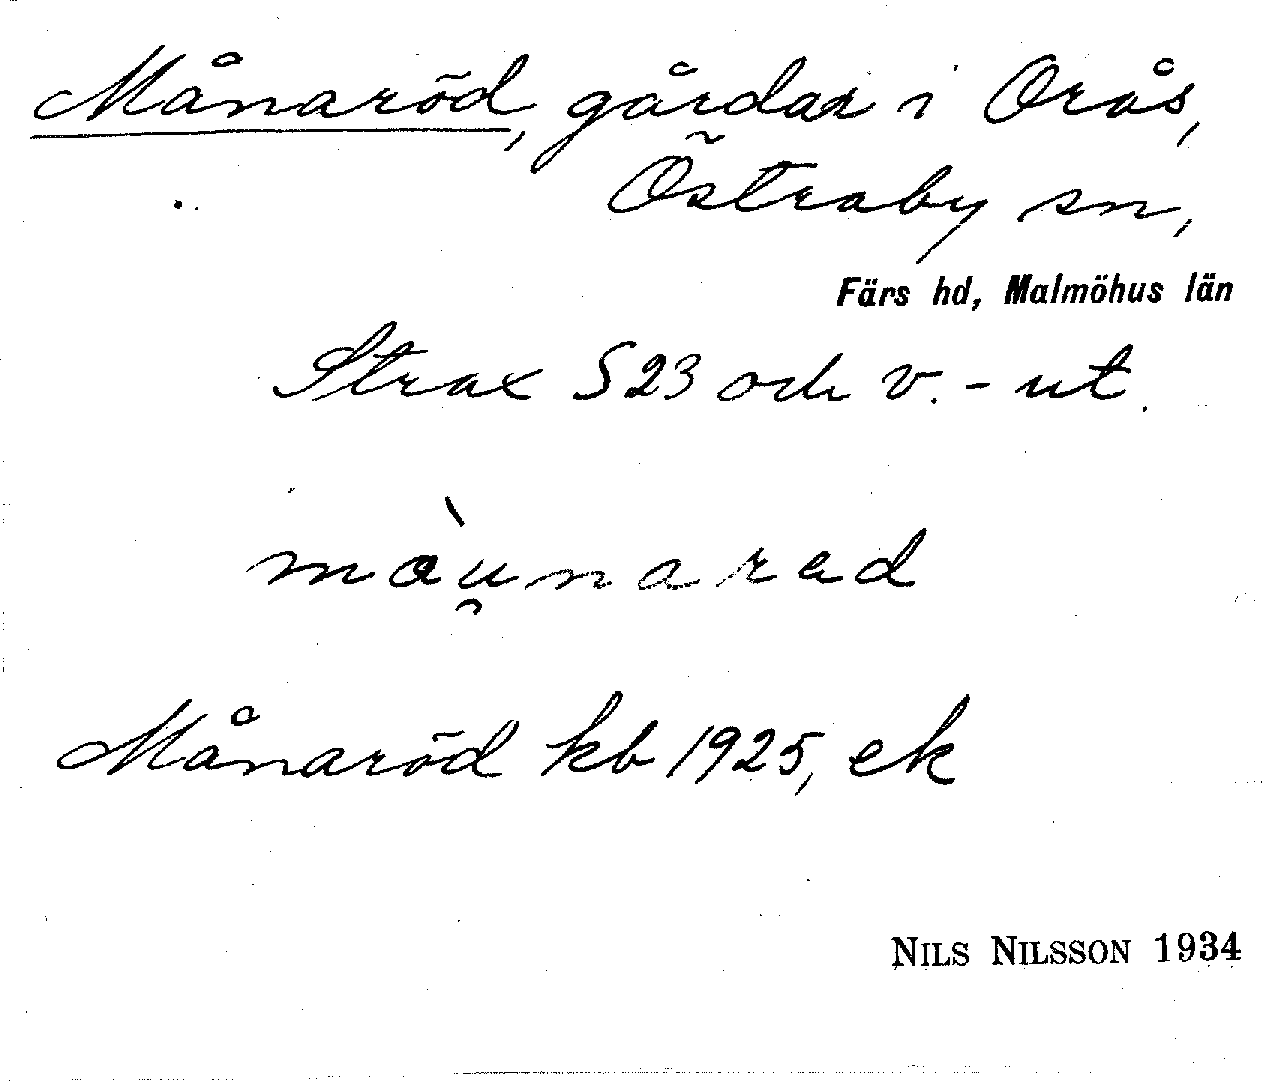 Månaröd, gårdar i Orås,
Östraby sn,
Färs hd, Malmöhus län
Strax S 23 och v. - ut.
màu̯narad
Månaröd kb 1925, ek
NILS NILSSON 1934